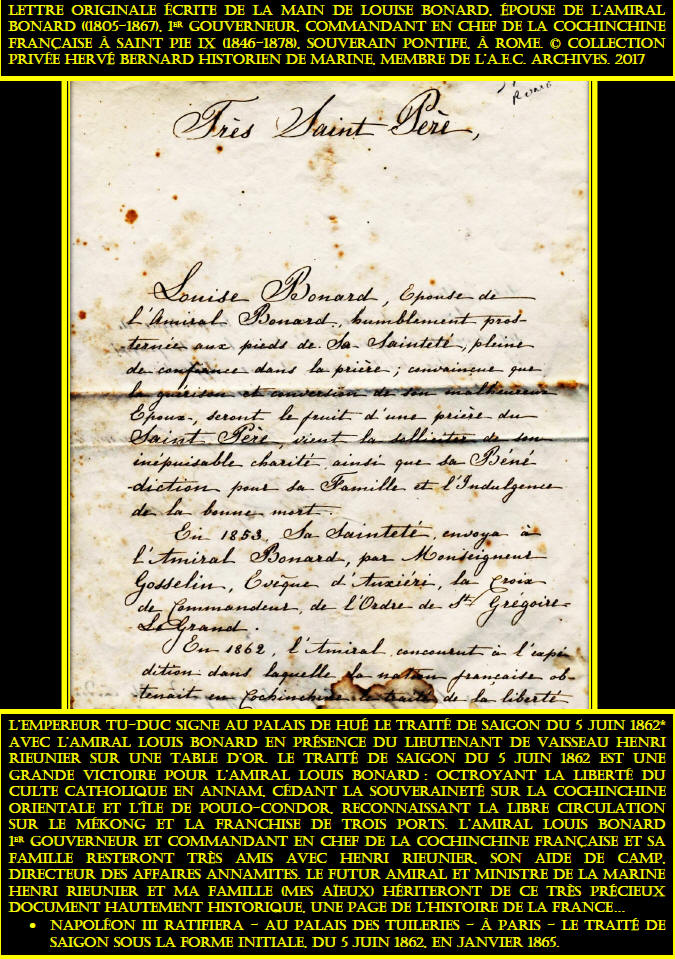 LETTRE ORIGINALE ÉCRITE DE LA MAIN DE LOUISE BONARD, ÉPOUSE DE L'AMIRAL
BONARD ((1805-1867), 1ER GOUVERNEUR, COMMANDANT EN CHEF DE LA COCHINCHINE
FRANÇAISE À SAINT PIE IX (1846-1878), SOUVERAIN PONTIFE, À ROME. © COLLECTION
PRIVÉE HERVÉ BERNARD HISTORIEN DE MARINE, MEMBRE DE L'A.E.C. ARCHIVES. 2017
Rome
Très Saint Père,
Louise Bonard, Epouse de
l'Amiral Bonard, humblement pros-
ternée aux pieds de Sa Sainteté, pleine
de confiance dans la prière ; convaincue que
la guérison et conversion de son malheureux
Epoux, seront le fruit d'une prière du
Saint Père, vient la solliciter de son
inépuisable charité, ainsi que sa Béné
-diction pour sa Famille et l'Indulgence
de la bonne mort.
En 1853, Sa Sainteté, envoya à
l'Amiral Bonard, par Monseigneur
Gosselin, Evêque d'Auxiéri, la Croix
de Commandeur, de l'Ordre de St Grégoire-
Le Grand.
En 1862, l'Amiral, concourut à l'expé
dition dans laquelle la nation française ob-
tenait en Cochinchine le traité de la liberté
L'EMPEREUR TU-DUC SIGNE AU PALAIS DE HUÉ LE TRAITÉ DE SAIGON DU 5 JUIN 1862*
AVEC L'AMIRAL LOUIS BONARD EN PRÉSENCE DU LIEUTENANT DE VAISSEAU HENRI
RIEUNIER SUR UNE TABLE D'OR. LE TRAITÉ DE SAIGON DU 5 JUIN 1862 EST UNE
GRANDE VICTOIRE POUR L'AMIRAL LOUIS BONARD : OCTROYANT LA LIBERTÉ DU
CULTE CATHOLIQUE EN ANNAM, CÉDANT LA SOUVERAINETÉ SUR LA COCHINCHINE
ORIENTALE ET L'ÎLE DE POULO-CONDOR, RECONNAISSANT LA LIBRE CIRCULATION
SUR LE MÉKONG ET LA FRANCHISE DE TROIS PORTS. L'AMIRAL LOUIS BONARD
1ER GOUVERNEUR ET COMMANDANT EN CHEF DE LA COCHINCHINE FRANÇAISE ET SA
FAMILLE RESTERONT TRÈS AMIS AVEC HENRI RIEUNIER, SON AIDE DE CAMP,
DIRECTEUR DES AFFAIRES ANNAMITES. LE FUTUR AMIRAL ET MINISTRE DE LA MARINE
HENRI RIEUNIER ET MA FAMILLE (MES AÏEUX) HÉRITERONT DE CE TRÈS PRÉCIEUX
DOCUMENT HAUTEMENT HISTORIQUE, UNE PAGE DE L'HISTOIRE DE LA FRANCE...
• NAPOLÉON III RATIFIERA - AU PALAIS DES TUILERIES - À PARIS - LE TRAITÉ DE
SAIGON SOUS LA FORME INITIALE, DU 5 JUIN 1862, EN JANVIER 1865.